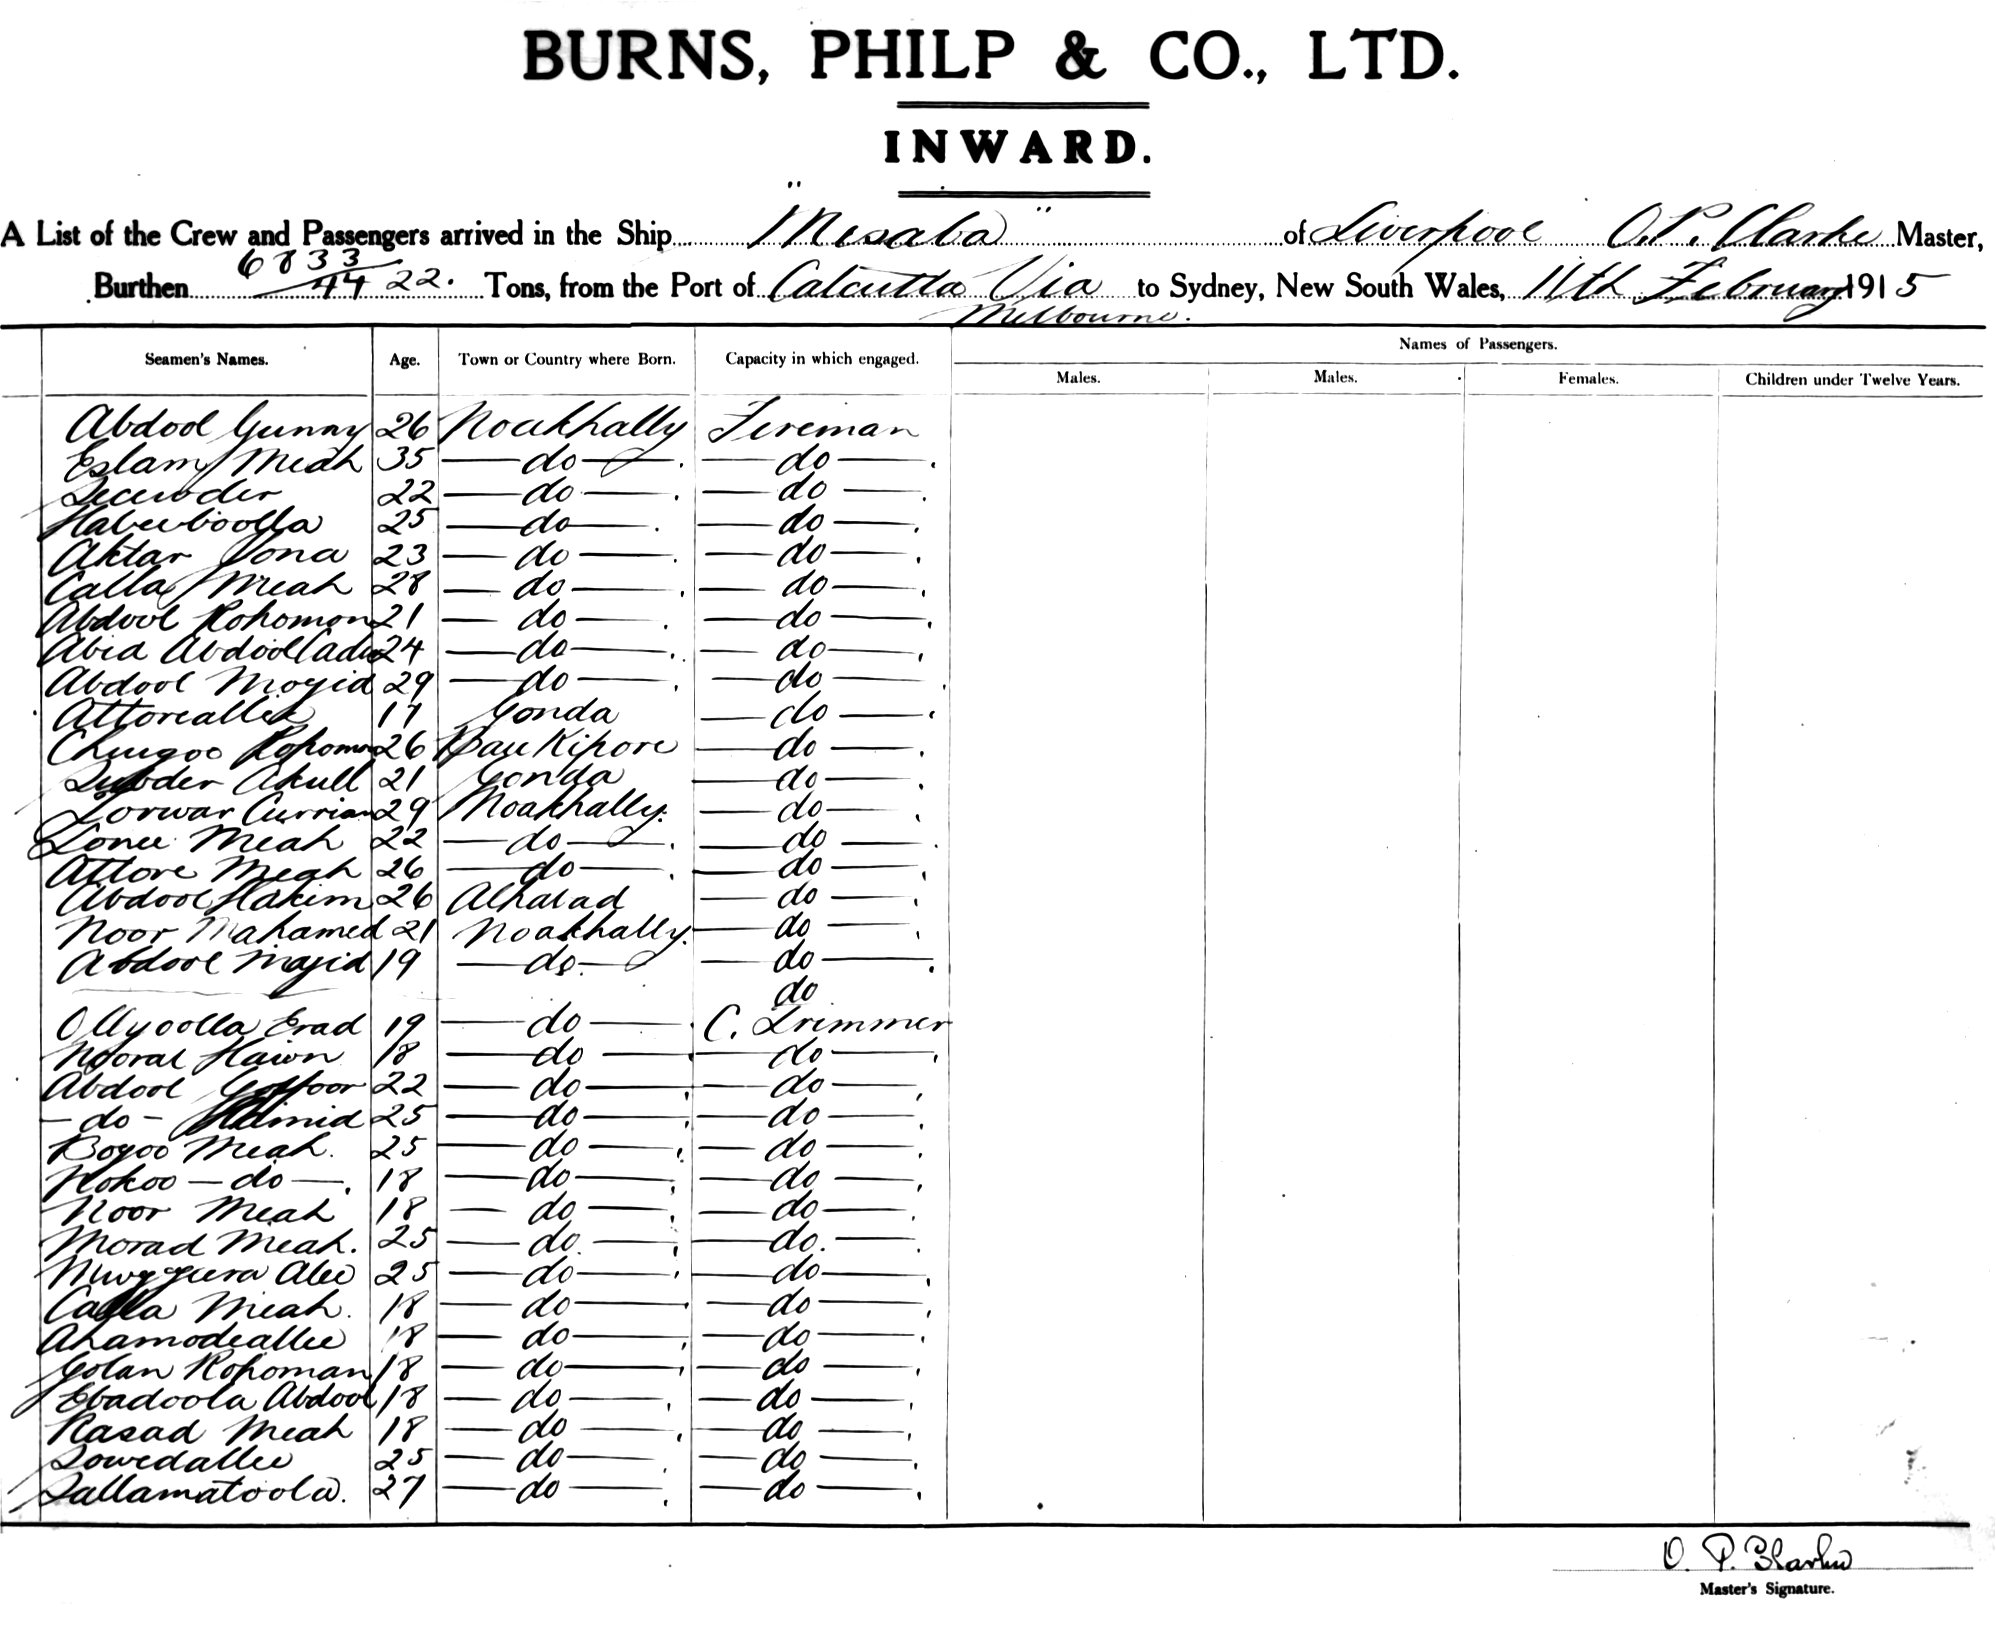 BURNS, PHILP & CO., LTD.
INWARD.
A List of the Crew and Passengers arrived in the Ship "Mesaba" of Liverpool O. P. Clarke Master,
Burthen 6833/4422. Tons, from the Port of Calcutta Via Melbourne. to Sydney, New South Wales, 11th February 1915
Seamen's Names. Age. Town or Country where Born. Capacity in which engaged. Names of Passengers.
Males. Males. Females. Children under Twelve Years.
Abdool Gunny 26 Noakhally Fireman
Eslam Meah 35 do do
22 do do
Habeeboolla 25 do do
Aktar Jona 23 do do
Calla Meah 28 do do
Abdool Rohomon 21 do do
Abid Abdool Cader 24 do do
Abdool Mojid 29 do do
Attoreallee 17 Gonda do
Rohomon 26 Bankipore do
Akull 21 Gonda do
29 Noakhally. do
Sonee Meah 22 do do
Attore Meah 26 do do
Abdool Hakim 26 Alhabad do
Noor Mahamed 21 Noakhally. do
Abdool Mojid 19 do. do
do
Ollyoolla Erad 19 do C. Trimmer
Nooral 18 do do
Abdool Goffoor 22 do do
- do - Hamid 25 do do
Bogoo Meah. 25 do do
Nokoo - do -. 18 do do
Noor Meah 18 do do
Morad Meah. 25 do. do.
Alee 25 do do
Calla Meah. 18 do do
Ahamodeallee 18 do do
Golan Rohoman 18 do do
Ebadoola Abdool 18 do do
Rasad Meah 18 do do
Sowedallee 25 do do
Sallamatoola. 27 do do
O. P. Clarke
Master's Signature.